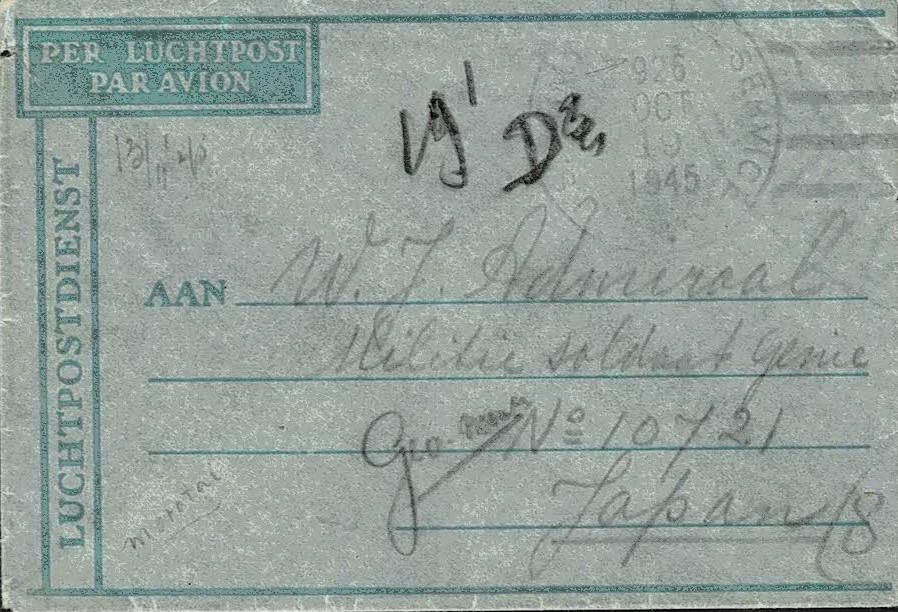 PER LUCHTPOST
PAR AVION
LUCHTPOSTDIENST
926
OCT
19
1945
SERVICE
AAN W. J. Admiraal
Militie soldaat genie
Nº 10721
Japan
Morotai